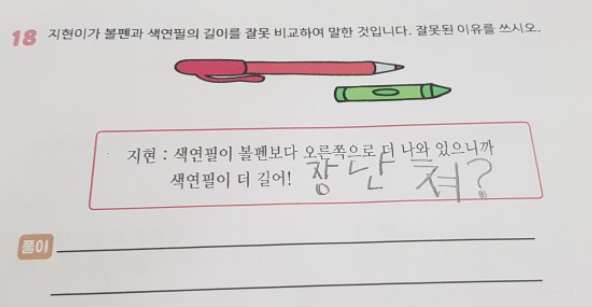 18 지현이가 볼펜과 색연필의 길이를 잘못 비교하여 말한 것입니다. 잘못된 이유를 쓰시오.
지현 : 색연필이 볼펜보다 오른쪽으로 더 나와 있으니까
색연필이 더 길어! 장난쳐?
풀이